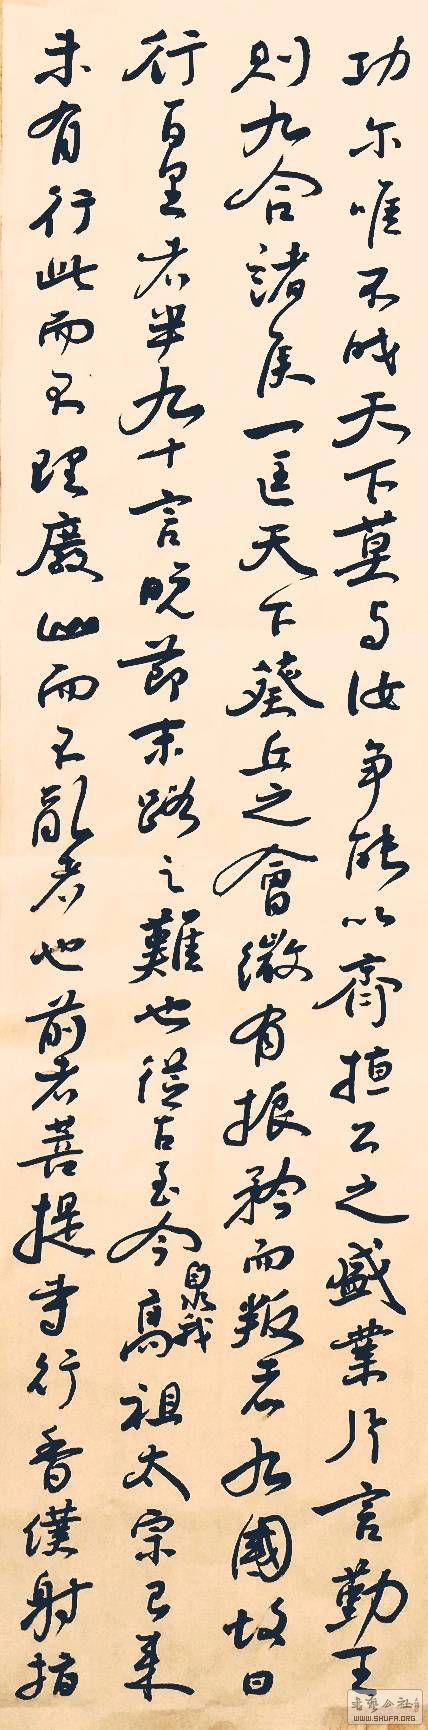 功尔唯不矜天下莫与汝争能以齐桓公之盛業片言勤王
则九合諸侯一匡天下葵丘之會微有振矜而叛者九國故曰
行百里者半九十言晚節末路之難也從古至今泉我高祖太宗已来
未有行此而不理廢此而不亂者也前者菩提寺行香僕射指
书艺公社
WWW.SHUFA.ORG